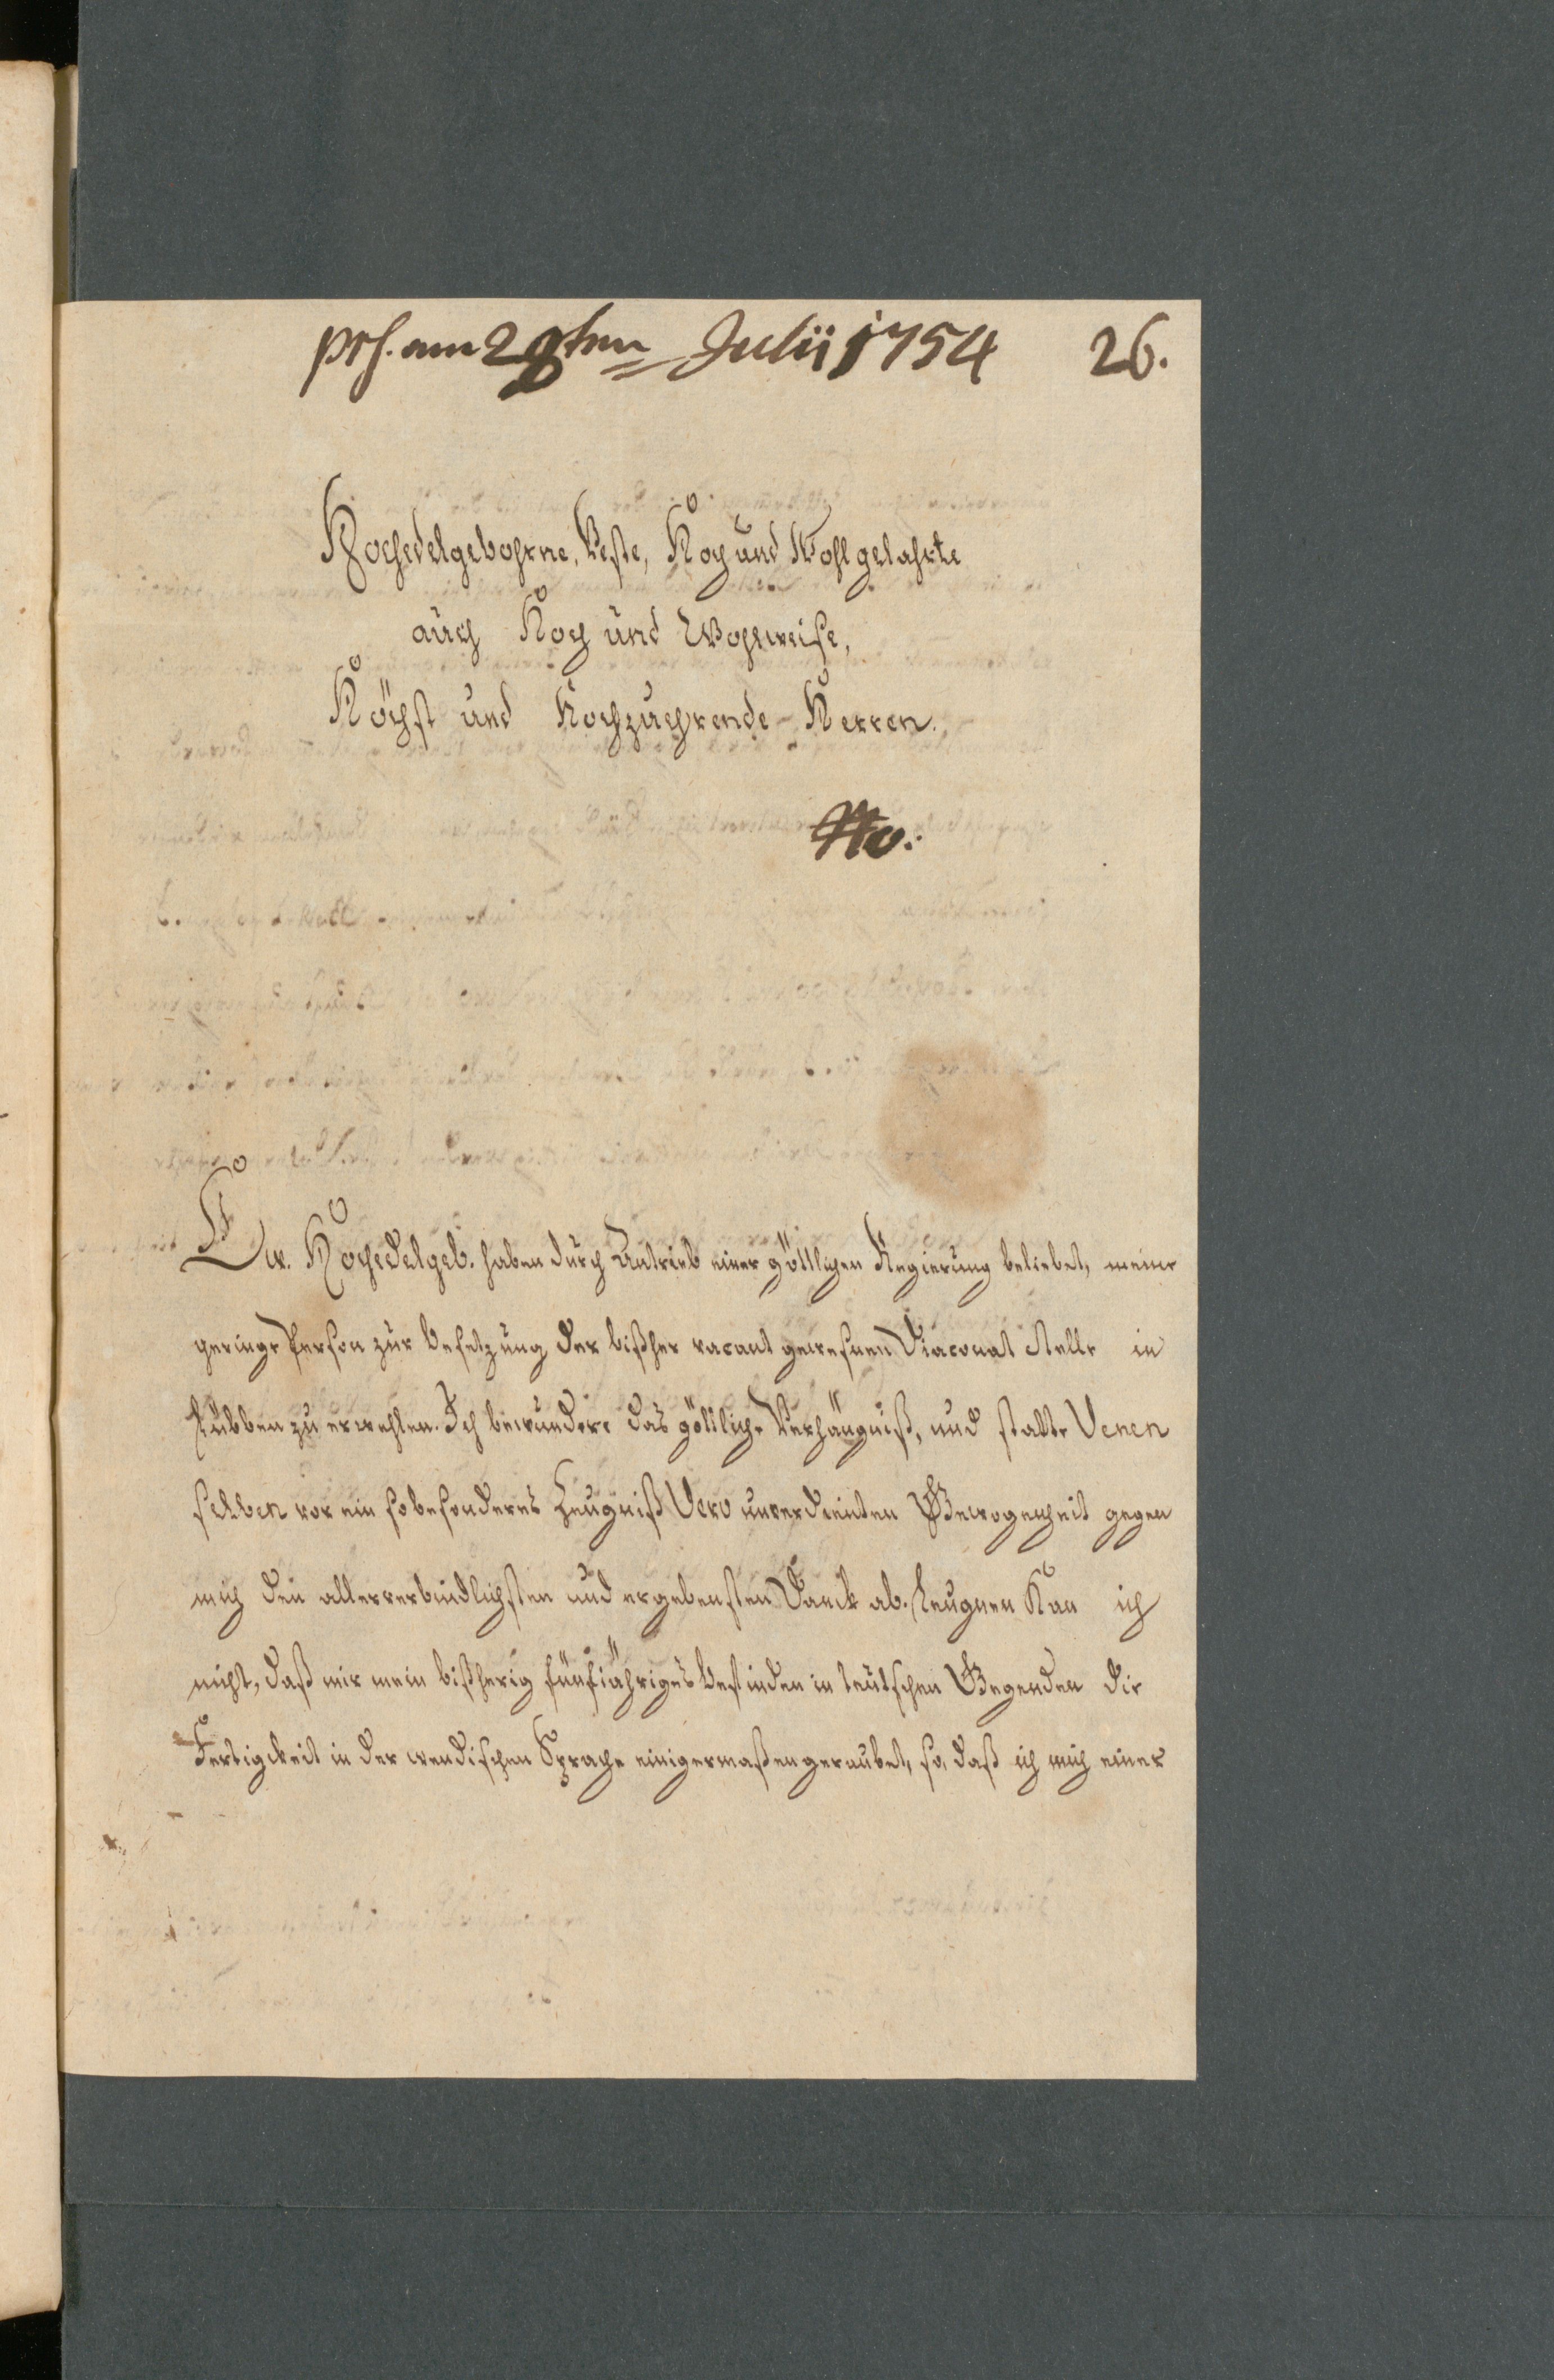 prs. am 29ten Julii 1754 26.
Hochedelgebohrne, Veste, Hoch und Wohlgelahrte
auch Hoch und Wohlweise,
Höchst und Hochzuehrende Herren.
Ew. Hochedelgeb. haben durch Antrieb einer göttlichen Regierung beliebet, meine
geringe Person zur Besetzung der bißher vacant gewesenen Diaconat Stelle in
Lübben zu erwehlen. Ich bewundere das göttliche Verhängniß, und statte Denen
selben vor ein so besonderes Zeugniß Dero unverdienten Gewogenheit gegen
mich den allerverbindlichsten und ergebensten Danck ab. Leugnen Kan ich
nicht, daß mir mein bißherig fünfjähriges Befinden in teutschen Gegenden die
Fertigkeit in der wendischen Sprache einigermaßen geraubet, so, daß ich mich einer